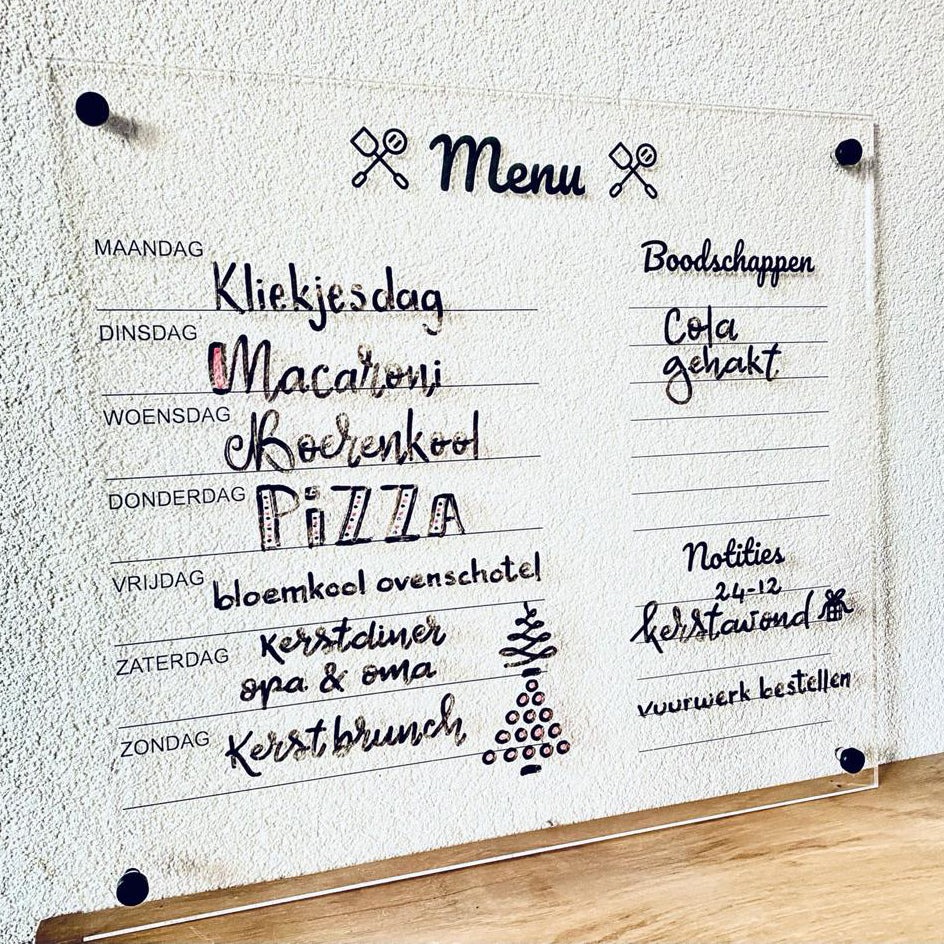 Menu
MAANDAG
Kliekjesdag
DINSDAG
Macaroni
WOENSDAG
Boerenkool
DONDERDAG
PiZZA
VRIJDAG
bloemkool ovenschotel
ZATERDAG
kerstdiner
opa & oma
ZONDAG
kerstbrunch
Boodschappen
Cola
gehakt
Notities
24-12
kerstavond
vuurwerk bestellen